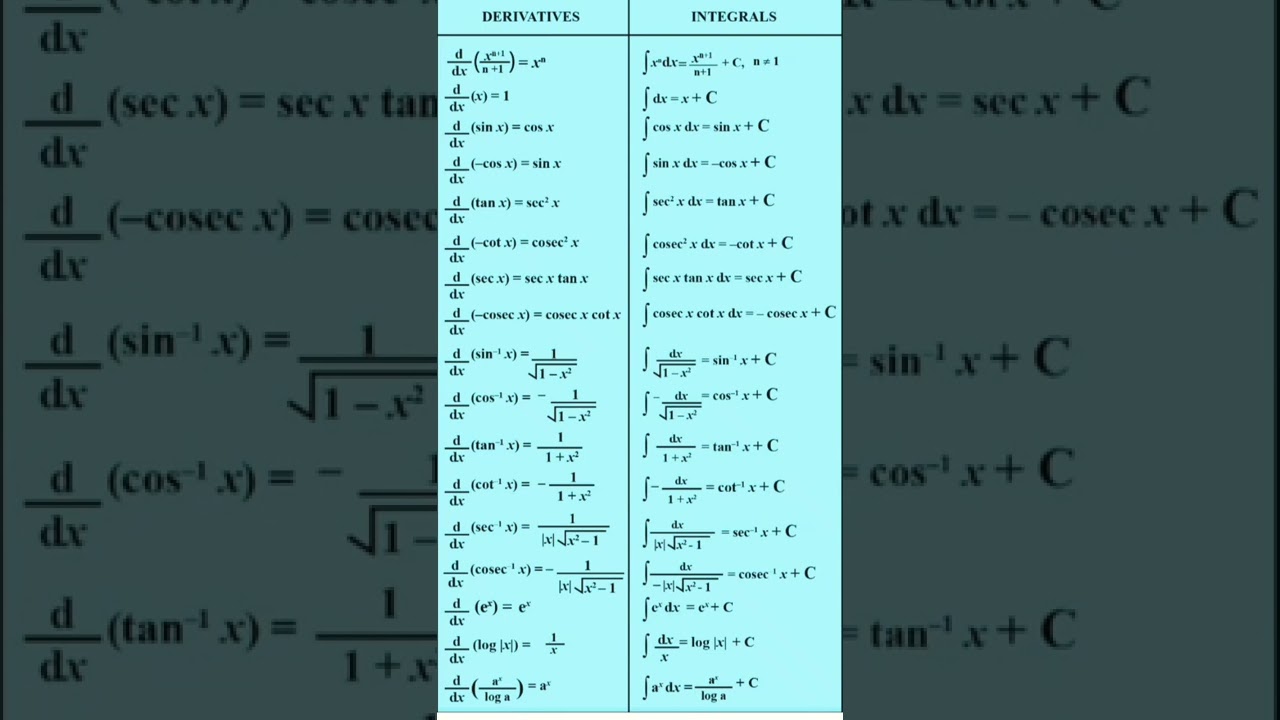 DERIVATIVES INTEGRALS
d/dx (xⁿ⁺¹/n+1) = xⁿ ∫xⁿdx = xⁿ⁺¹/n+1 + C, n ≠ 1
d/dx (x) = 1 ∫ dx = x + C
d/dx (sin x) = cos x ∫ cos x dx = sin x + C
d/dx (–cos x) = sin x ∫ sin x dx = –cos x + C
d/dx (tan x) = sec² x ∫ sec² x dx = tan x + C
d/dx (–cot x) = cosec² x ∫ cosec² x dx = –cot x + C
d/dx (sec x) = sec x tan x ∫ sec x tan x dx = sec x + C
d/dx (–cosec x) = cosec x cot x ∫ cosec x cot x dx = – cosec x + C
d/dx (sin⁻¹ x) = 1/√1 – x² ∫ dx/√1 – x² = sin⁻¹ x + C
d/dx (cos⁻¹ x) = – 1/√1 – x² ∫ – dx/√1 – x² = cos⁻¹ x + C
d/dx (tan⁻¹ x) = 1/1 + x² ∫ dx/1 + x² = tan⁻¹ x + C
d/dx (cot⁻¹ x) = – 1/1 + x² ∫ – dx/1 + x² = cot⁻¹ x + C
d/dx (sec⁻¹ x) = 1/|x|√x² – 1 ∫ dx/|x|√x² - 1 = sec⁻¹ x + C
d/dx (cosec⁻¹ x) = – 1/|x|√x² – 1 ∫ dx/–|x|√x² - 1 = cosec⁻¹ x + C
d/dx (eˣ) = eˣ ∫eˣ dx = eˣ + C
d/dx (log |x|) = 1/x ∫ dx/x = log |x| + C
d/dx (aˣ/log a) = aˣ ∫aˣ dx = aˣ/log a + C